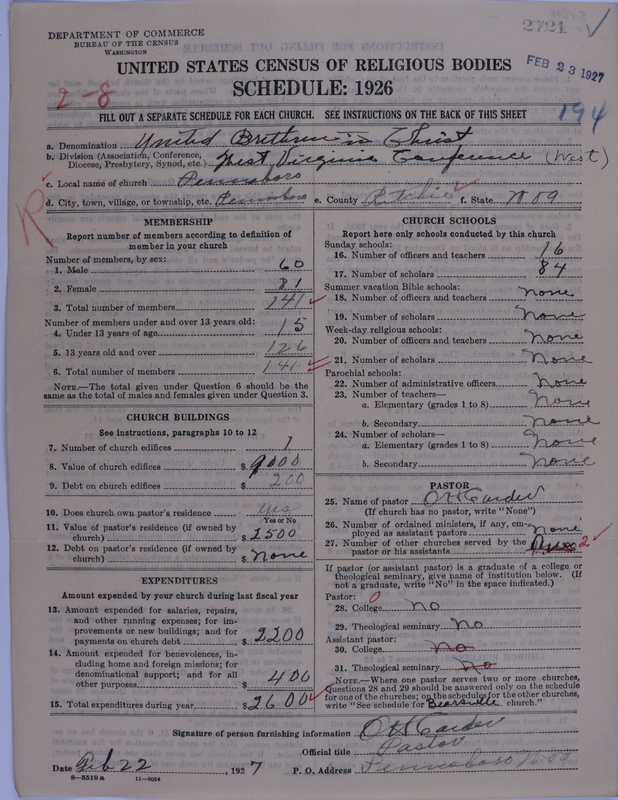 DEPARTMENT OF COMMERCE
BUREAU OF THE CENSUS
WASHINGTON
2721 ✓
FEB 23 1927
UNITED STATES CENSUS OF RELIGIOUS BODIES
SCHEDULE: 1926
2-8
194
FILL OUT A SEPARATE SCHEDULE FOR EACH CHURCH. SEE INSTRUCTIONS ON THE BACK OF THIS SHEET
a. Denomination United Brethren in Christ
b. Division (Association, Conference, Diocese, Presbytery, Synod, etc.) West Virginia Conference (West)
c. Local name of church Pennsboro
d. City, town, village, or township, etc. Pennsboro e. County Ritchie f. State
MEMBERSHIP
Report number of members according to definition of member in your church
Number of members, by sex:
1. Male 60
2. Female 81
3. Total number of members 141 ✓
Number of members under and over 13 years old:
4. Under 13 years of age 15
5. 13 years old and over 126
6. Total number of members 141 ✓
NOTE.—The total given under Question 6 should be the same as the total of males and females given under Question 3.
CHURCH BUILDINGS
See instructions, paragraphs 10 to 12
7. Number of church edifices 1
8. Value of church edifices $ 9000
9. Debt on church edifices $ 200
10. Does church own pastor's residence yes
Yes or No
11. Value of pastor's residence (if owned by church) $ 2500
12. Debt on pastor's residence (if owned by church) $ None
EXPENDITURES
Amount expended by your church during last fiscal year
13. Amount expended for salaries, repairs, and other running expenses; for improvements or new buildings; and for payments on church debt $ 2200
14. Amount expended for benevolences, including home and foreign missions; for denominational support; and for all other purposes $ 400
15. Total expenditures during year $ 2600 ✓
CHURCH SCHOOLS
Report here only schools conducted by this church
Sunday schools:
16. Number of officers and teachers 16
17. Number of scholars 84
Summer vacation Bible schools:
18. Number of officers and teachers None
19. Number of scholars None
Week-day religious schools:
20. Number of officers and teachers None
21. Number of scholars None
Parochial schools:
22. Number of administrative officers None
23. Number of teachers—
a. Elementary (grades 1 to 8) None
b. Secondary None
24. Number of scholars—
a. Elementary (grades 1 to 8) None
b. Secondary None
PASTOR
25. Name of pastor O H Carder
(If church has no pastor, write "None")
26. Number of ordained ministers, if any, employed as assistant pastors None
27. Number of other churches served by the pastor or his assistants 2 ✓
If pastor (or assistant pastor) is a graduate of a college or theological seminary, give name of institution below. (If not a graduate, write "No" in the space indicated.)
Pastor: 0
28. College No
29. Theological seminary No
Assistant pastor:
30. College No
31. Theological seminary No
NOTE.—Where one pastor serves two or more churches, Questions 28 and 29 should be answered only on the schedule for one of the churches; on the schedules for the other churches, write "See schedule for Bearsville church."
Signature of person furnishing information O H Carder
Official title Pastor
Date Feb 22, 1927 P. O. Address Pennsboro
8-5518a 11-9034